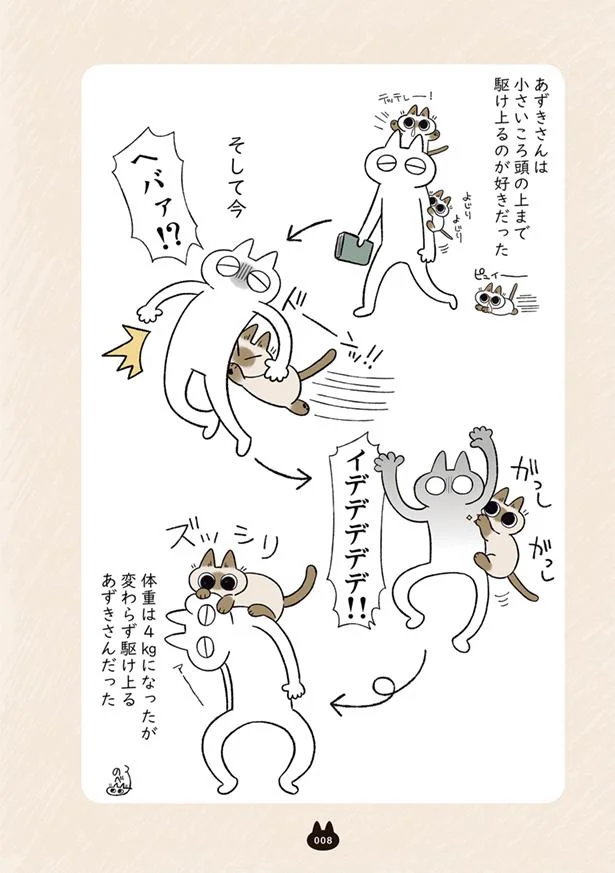 あずきさんは
小さいころ頭の上まで
駆け上るのが好きだった
テッテレー！
よじり
よじり
ピュイー
そして今
ヘバァ!?
ドーーンッ!!
イデデデデデデ!!
がっし
がっし
ズッシリ
アー
体重は4kgになったが
変わらず駆け上る
あずきさんだった
のべ
008